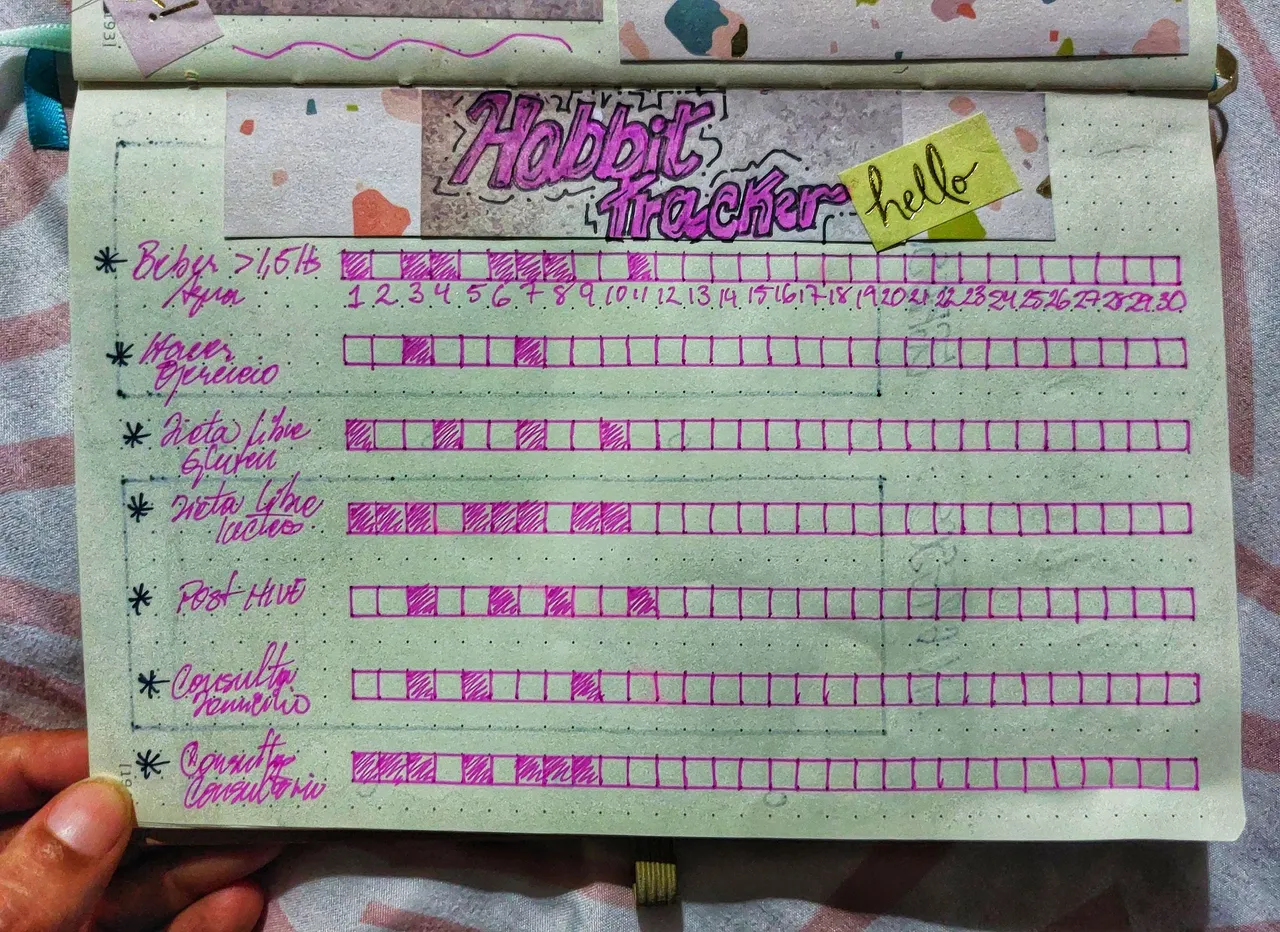 Habbit
Tracker
hello
Beber >1,5 lts
Agua
1 2 3 4 5 6 7 8 9 10 11 12 13 14 15 16 17 18 19 20 21 22 23 24 25 26 27 28 29 30
Hacer
Ejercicio
Dieta libre
Gluten
Dieta Libre
lacteo
Post HIVE
Consulta
Domicilio
Consulta
Consultorio